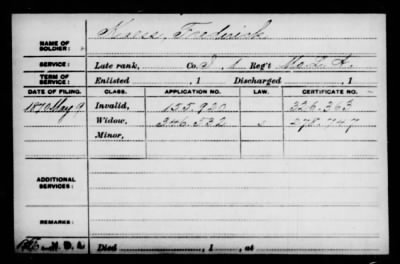 NAME OF SOLDIER: Kaess, Frederick
SERVICE: Late rank, Co. I, 1 Reg't Mo. L. A.
TERM OF SERVICE: Enlisted , 1 Discharged , 1
DATE OF FILING. CLASS. APPLICATION NO. LAW. CERTIFICATE NO.
1870 May 9 Invalid, 155.920 326.363
Widow, 346.532 278.747
Minor,
ADDITIONAL SERVICES:
REMARKS:
Died , 1 , at